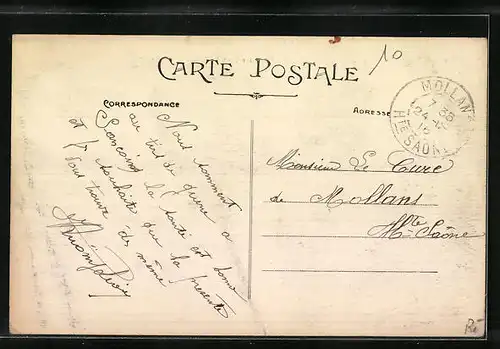 10
CARTE POSTALE
CORRESPONDANCE
ADRESSE
MOLLANS
7 35
24
Hte SAONE
Nous sommes
au tir de guerre a
la santé est bonne
et je souhaite que la presente
vous trouve de même
Monsieur Le Curé
de Mollans
Hte Saône